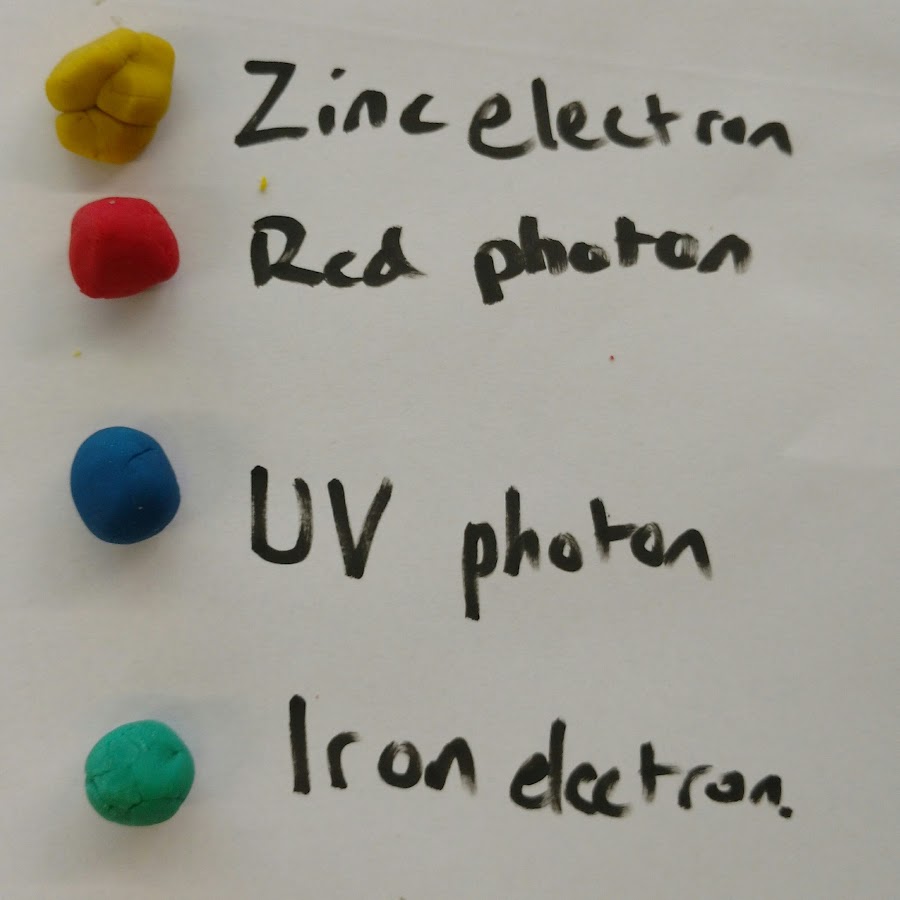 Zinc electron
Red photon
UV photon
Iron electron.